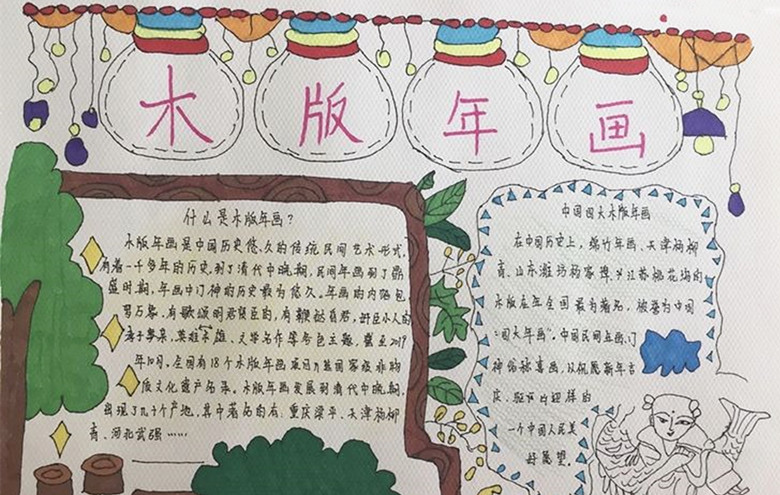 木版年画
什么是木版年画?
木版年画是中国历史悠久的传统民间艺术形式,
有着一千多年的历史,到了清代中晚期,民间年画到了鼎
盛时期,年画中门神的历史最为悠久。年画的内涵包
罗万象,有歌颂明君贤臣的,有鞭挞昏君,奸臣小人的
孝子事亲,英雄本雄、文学名作等各色主题,截至2019
年10月。全国有18个木版年画项目入选国家级非物
质文化遗产名录。木版年画发展到清代中晚期,
出现了几十个产地,其中著名的有:重庆梁平、天津杨柳
青、河北武强……
中国四大木版年画
在中国历史上,绵竹年画、天津杨柳
青、山东潍坊杨家埠、江苏桃花坞的
木版在年全国最为著名,被誉为中国
“四大年画”。中国民间年画、门
神俗称喜画,以祝愿新年吉
庆、驱凶迎祥的
一个中国人民美
好愿望。